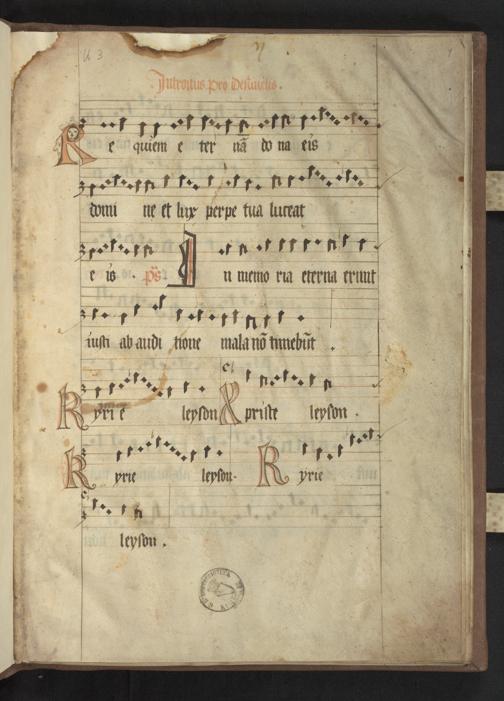 Introitus pro defunctis.
Re quiem e ter nā do na eis
domi ne et lux perpe tua luceat
e is. ps In memo ria eterna erunt
iusti ab audi tione mala nō timebūt.
Kyri e leyson Xpriste leyson.
Kyrie leyson. Kyrie
leyson.